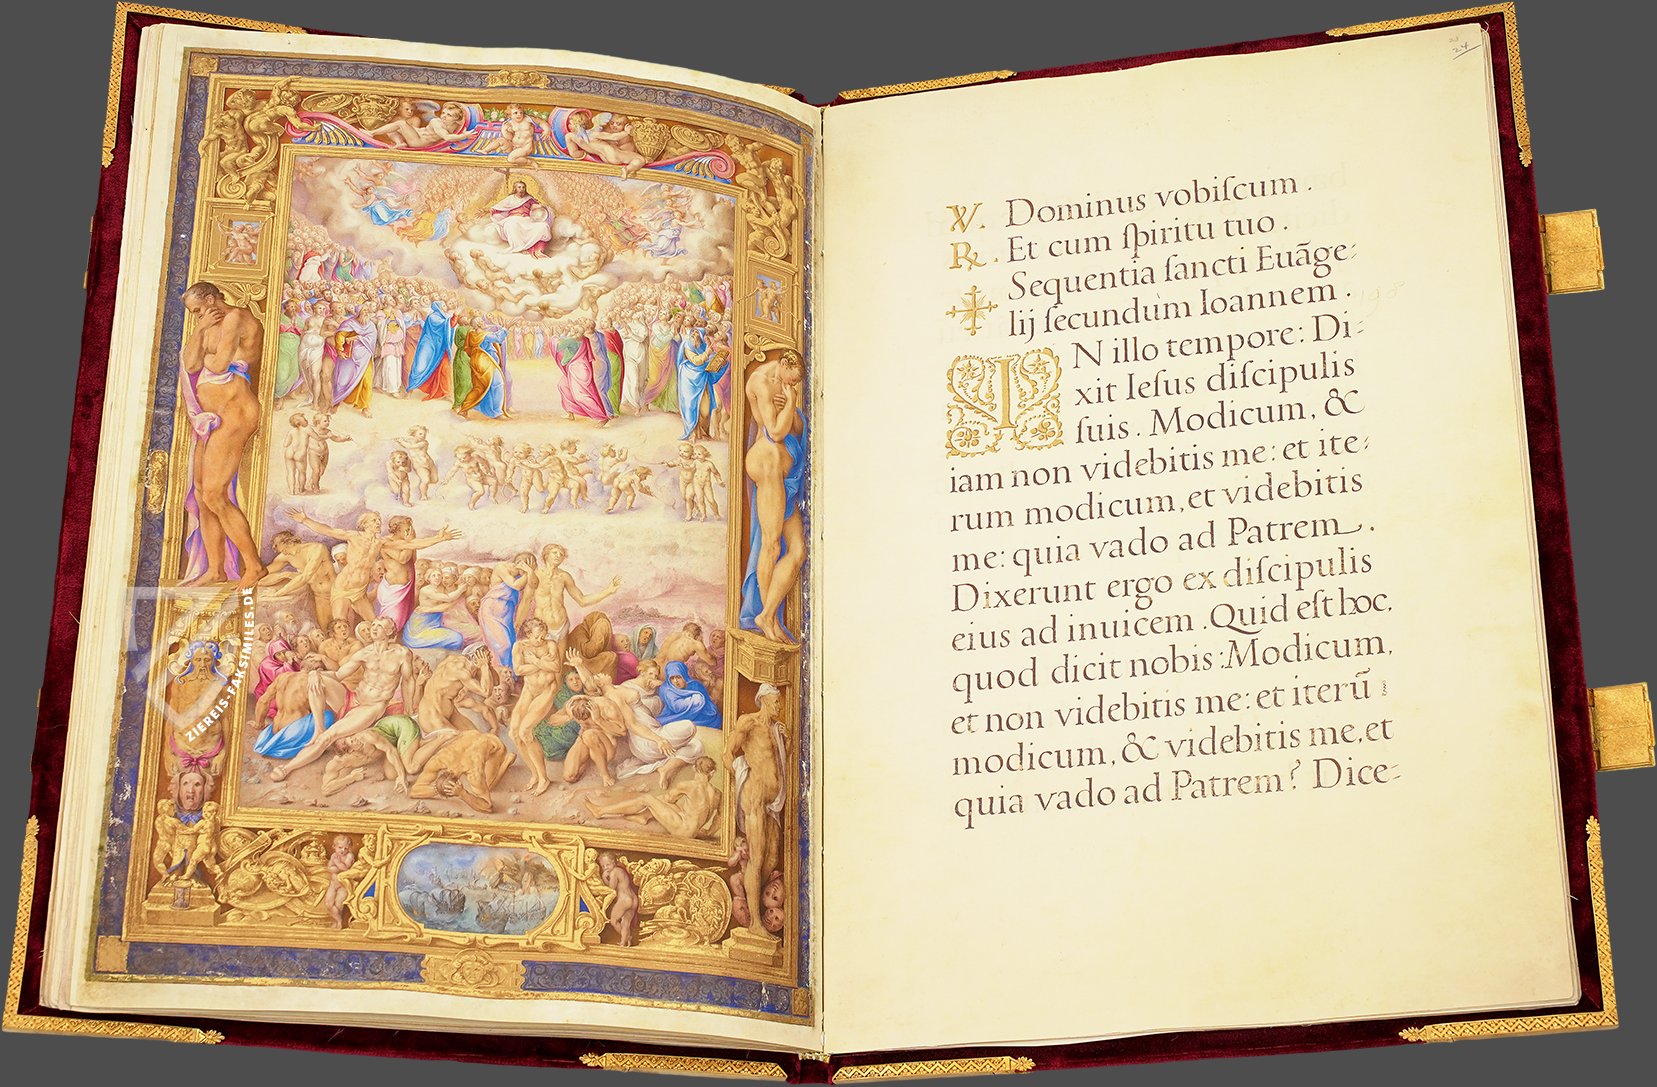 24
V. Dominus vobiſcum.
R. Et cum ſpiritu tuo.
Sequentia ſancti Euãge-
lij ſecundùm Ioannem.
IN illo tempore: Di-
xit Ieſus diſcipulis
ſuis. Modicum, &
iam non videbitis me: et ite-
rum modicum, et videbitis
me: quia vado ad Patrem.
Dixerunt ergo ex diſcipulis
eius ad inuicem. Quid eſt hoc,
quod dicit nobis: Modicum,
et non videbitis me: et iterũ
modicum, & videbitis me, et
quia vado ad Patrem? Dice-
ZIEREIS-FAKSIMILES.DE